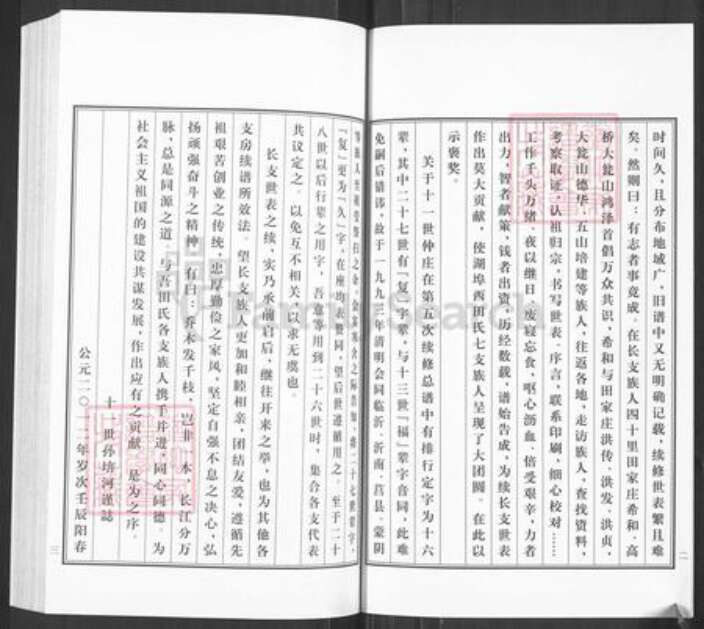 时间久，且分布地域广，旧谱中又无明确记载，续修世表繁且难
矣。然则曰：有志者事竟成，在长支族人四十里田家庄希和、高
桥大瓮山鸿泽首倡万众共识，希和与田家庄洪传、洪发、洪贞，
大瓮山德华、五山培建等族人，往返各地，走访族人，查找资料，
考察取证，认祖归宗，书写世表、序言，联系印刷，细心校对……
工作千头万绪，夜以继日，废寝忘食，呕心沥血，倍受艰辛，力者
出力，智者献策，钱者出资，历经数载，谱始告成，为续长支世表
作出莫大贡献，使湖埠西田氏七支族人呈现了大团圆。在此以
示褒奖。
关于十一世仲庄在第五次续修总谱中有排行定字为十六
辈，其中二十七世有「复」字辈，与十三世「福」辈字音同，此难
免嗣后错讳，故于一九九三年清明会同临沂、沂南、莒县、蒙阴
「复」更为「久」字，在座均表赞同，望后世遵循用之。至于二十
八世以后行辈之用字，吾意等用到二十六世时，集合各支代表
共议定之。以免互不相关，以求无虞也。
长支世表之续，实乃承前启后，继往开来之举，也为其他各
支房续谱所效法。望长支族人更加和睦相亲，团结友爱，遵循先
祖艰苦创业之传统，忠厚勤俭之家风，坚定自强不息之决心，弘
扬顽强奋斗之精神。有曰：乔木发千枝，岂非一本，长江分万
脉，总是同源之道。与吾田氏各支族人携手并进，同心同德。为
社会主义祖国的建设共谋发展，作出应有之贡献。是为之序。
十一世孙培河谨志
公元二〇一二年岁次壬辰阳春
二
三
FamilySearch